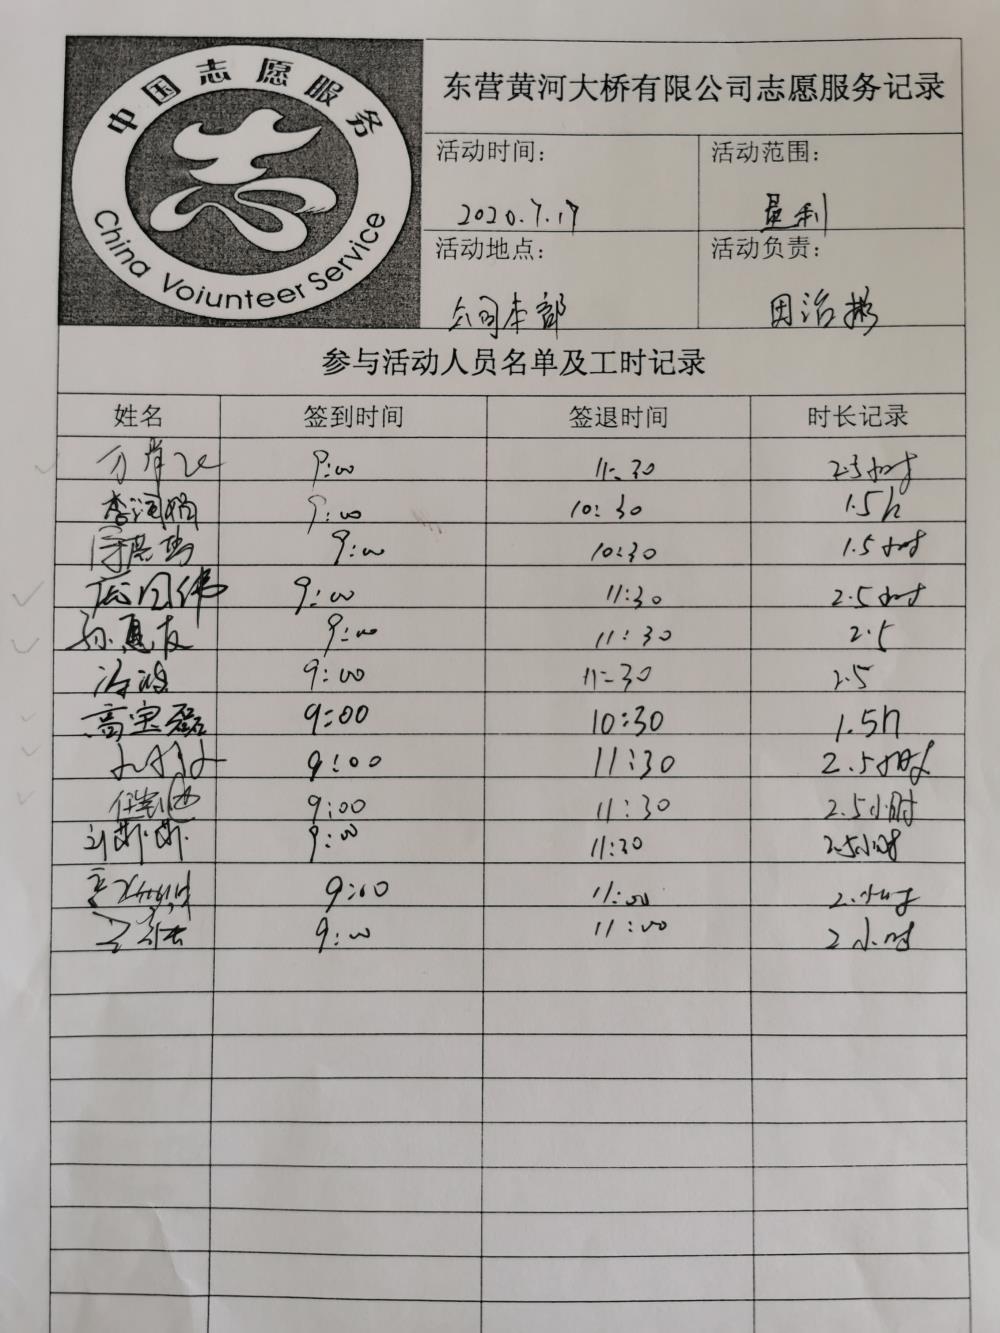 中国志愿服务
China Voiunteer Service
东营黄河大桥有限公司志愿服务记录
活动时间： 活动范围：
2020.7.17 垦利
活动地点： 活动负责：
公司本部 田治彬
参与活动人员名单及工时记录
姓名 签到时间 签退时间 时长记录
9:00 11:30 2.5小时
9:00 10:30 1.5h
9:00 10:30 1.5小时
9:00 11:30 2.5小时
孙惠友 9:00 11:30 2.5
9:00 11:30 2.5
高宝磊 9:00 10:30 1.5h
9:00 11:30 2.5小时
9:00 11:30 2.5小时
9:00 11:30 2.5小时
9:00 11:00 2小时
9:00 11:00 2小时